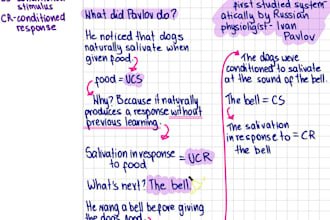 stimulus
CR-conditioned
response
What did Pavlov do?
He noticed that dogs
naturally salivate when
given food.
food = UCS
Why? Because it naturally
produces a response without
previous learning.
Salivation in response
to food = UCR
What's next? The bell.
He rang a bell before giving
the dogs food
first studied system-
atically by Russian
physiologist - Ivan
Pavlov
The dogs were
conditioned to salivate
at the sound of the bell.
The bell = CS
The salivation
in response to = CR
the bell